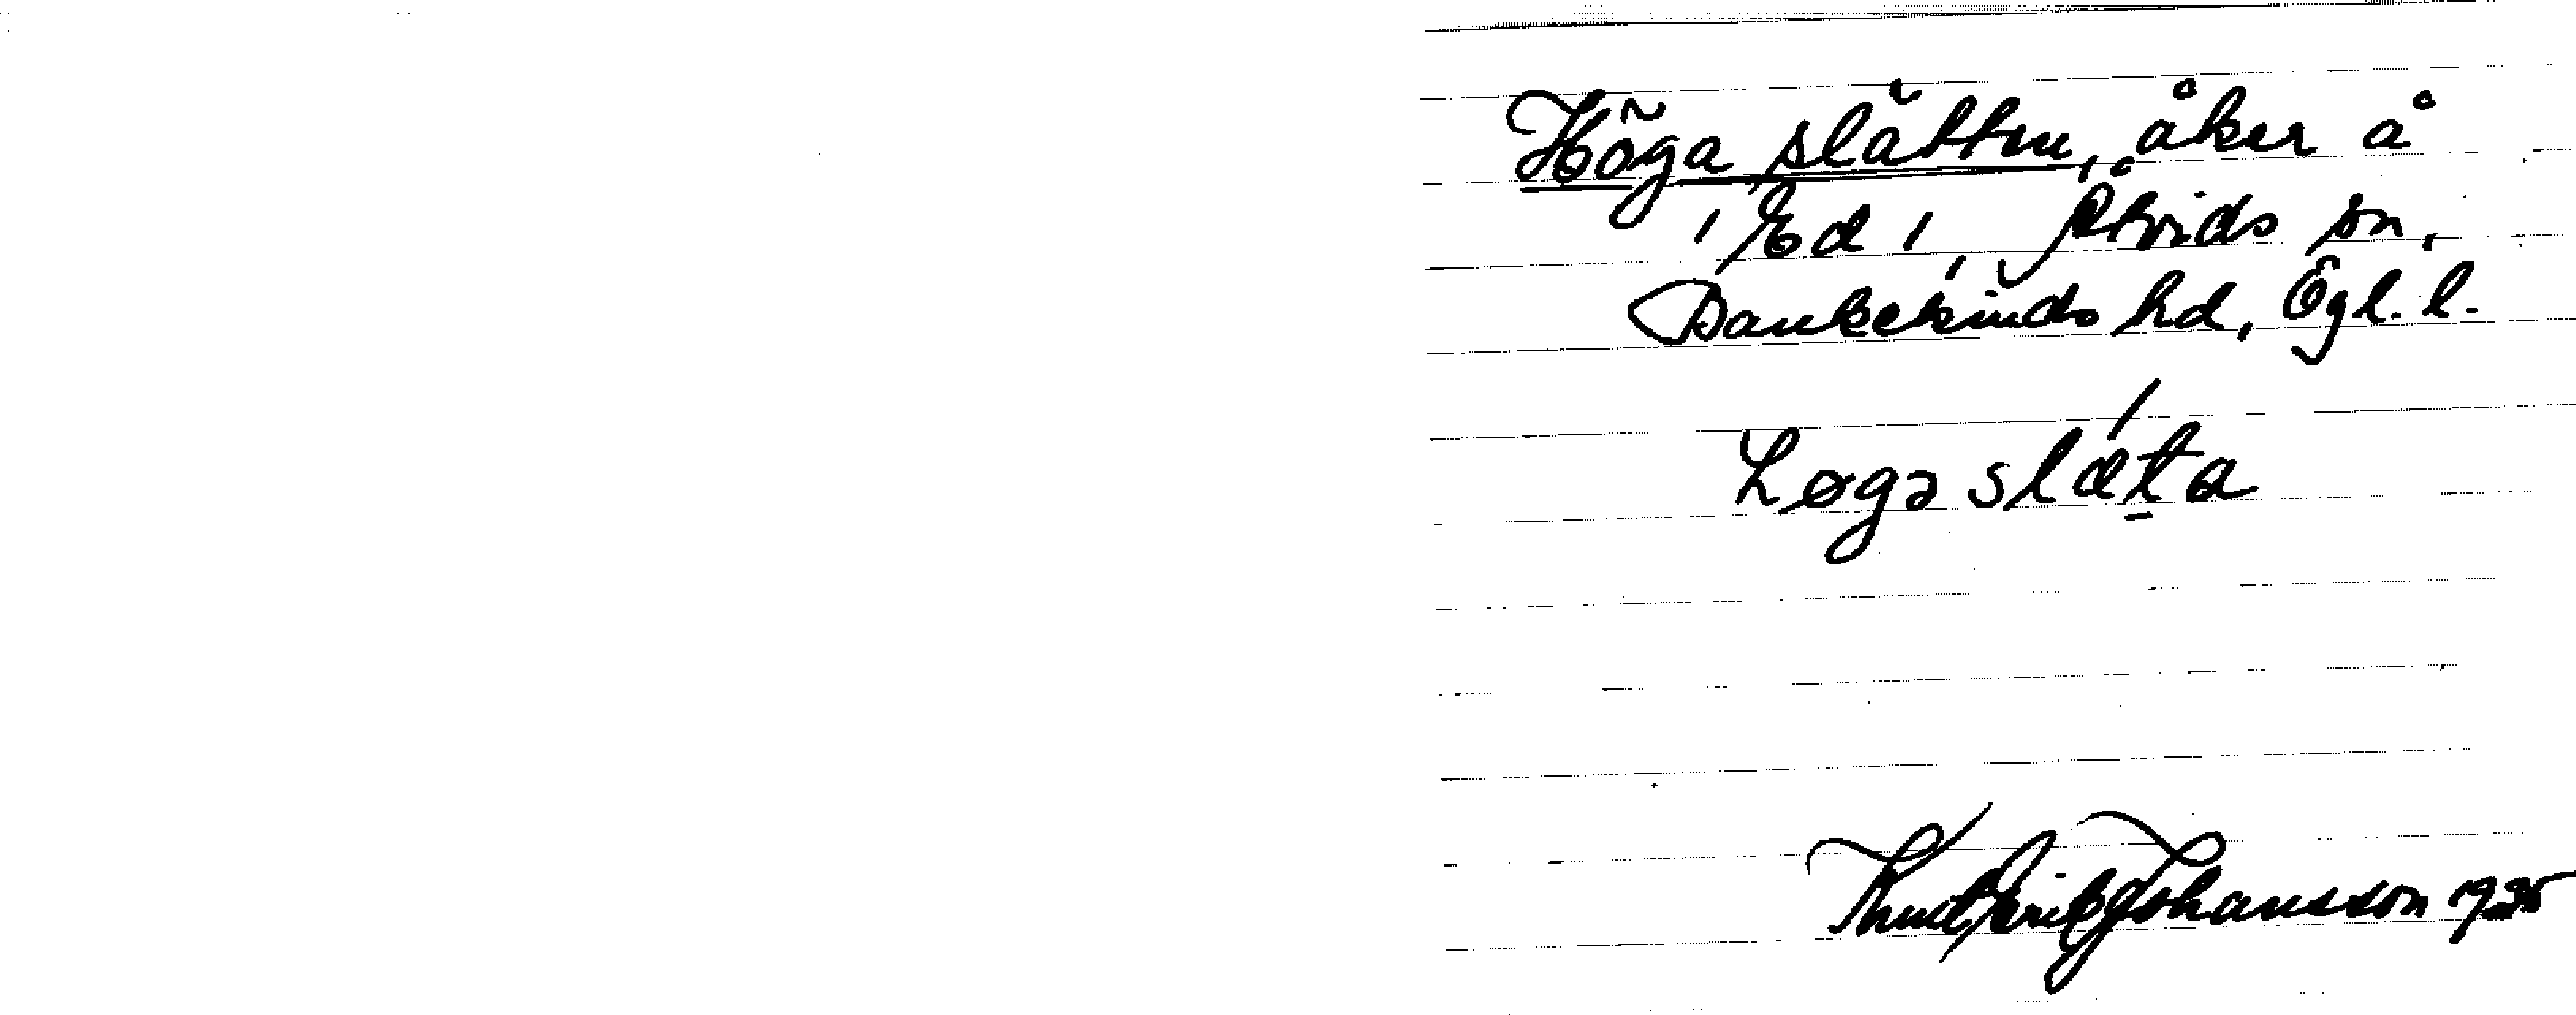 Höga slätten, åker å
Ed, Åtvids sn,
Bankekinds hd, Ögl. l.
høgə slæta
Knut Erik Johansson 1935